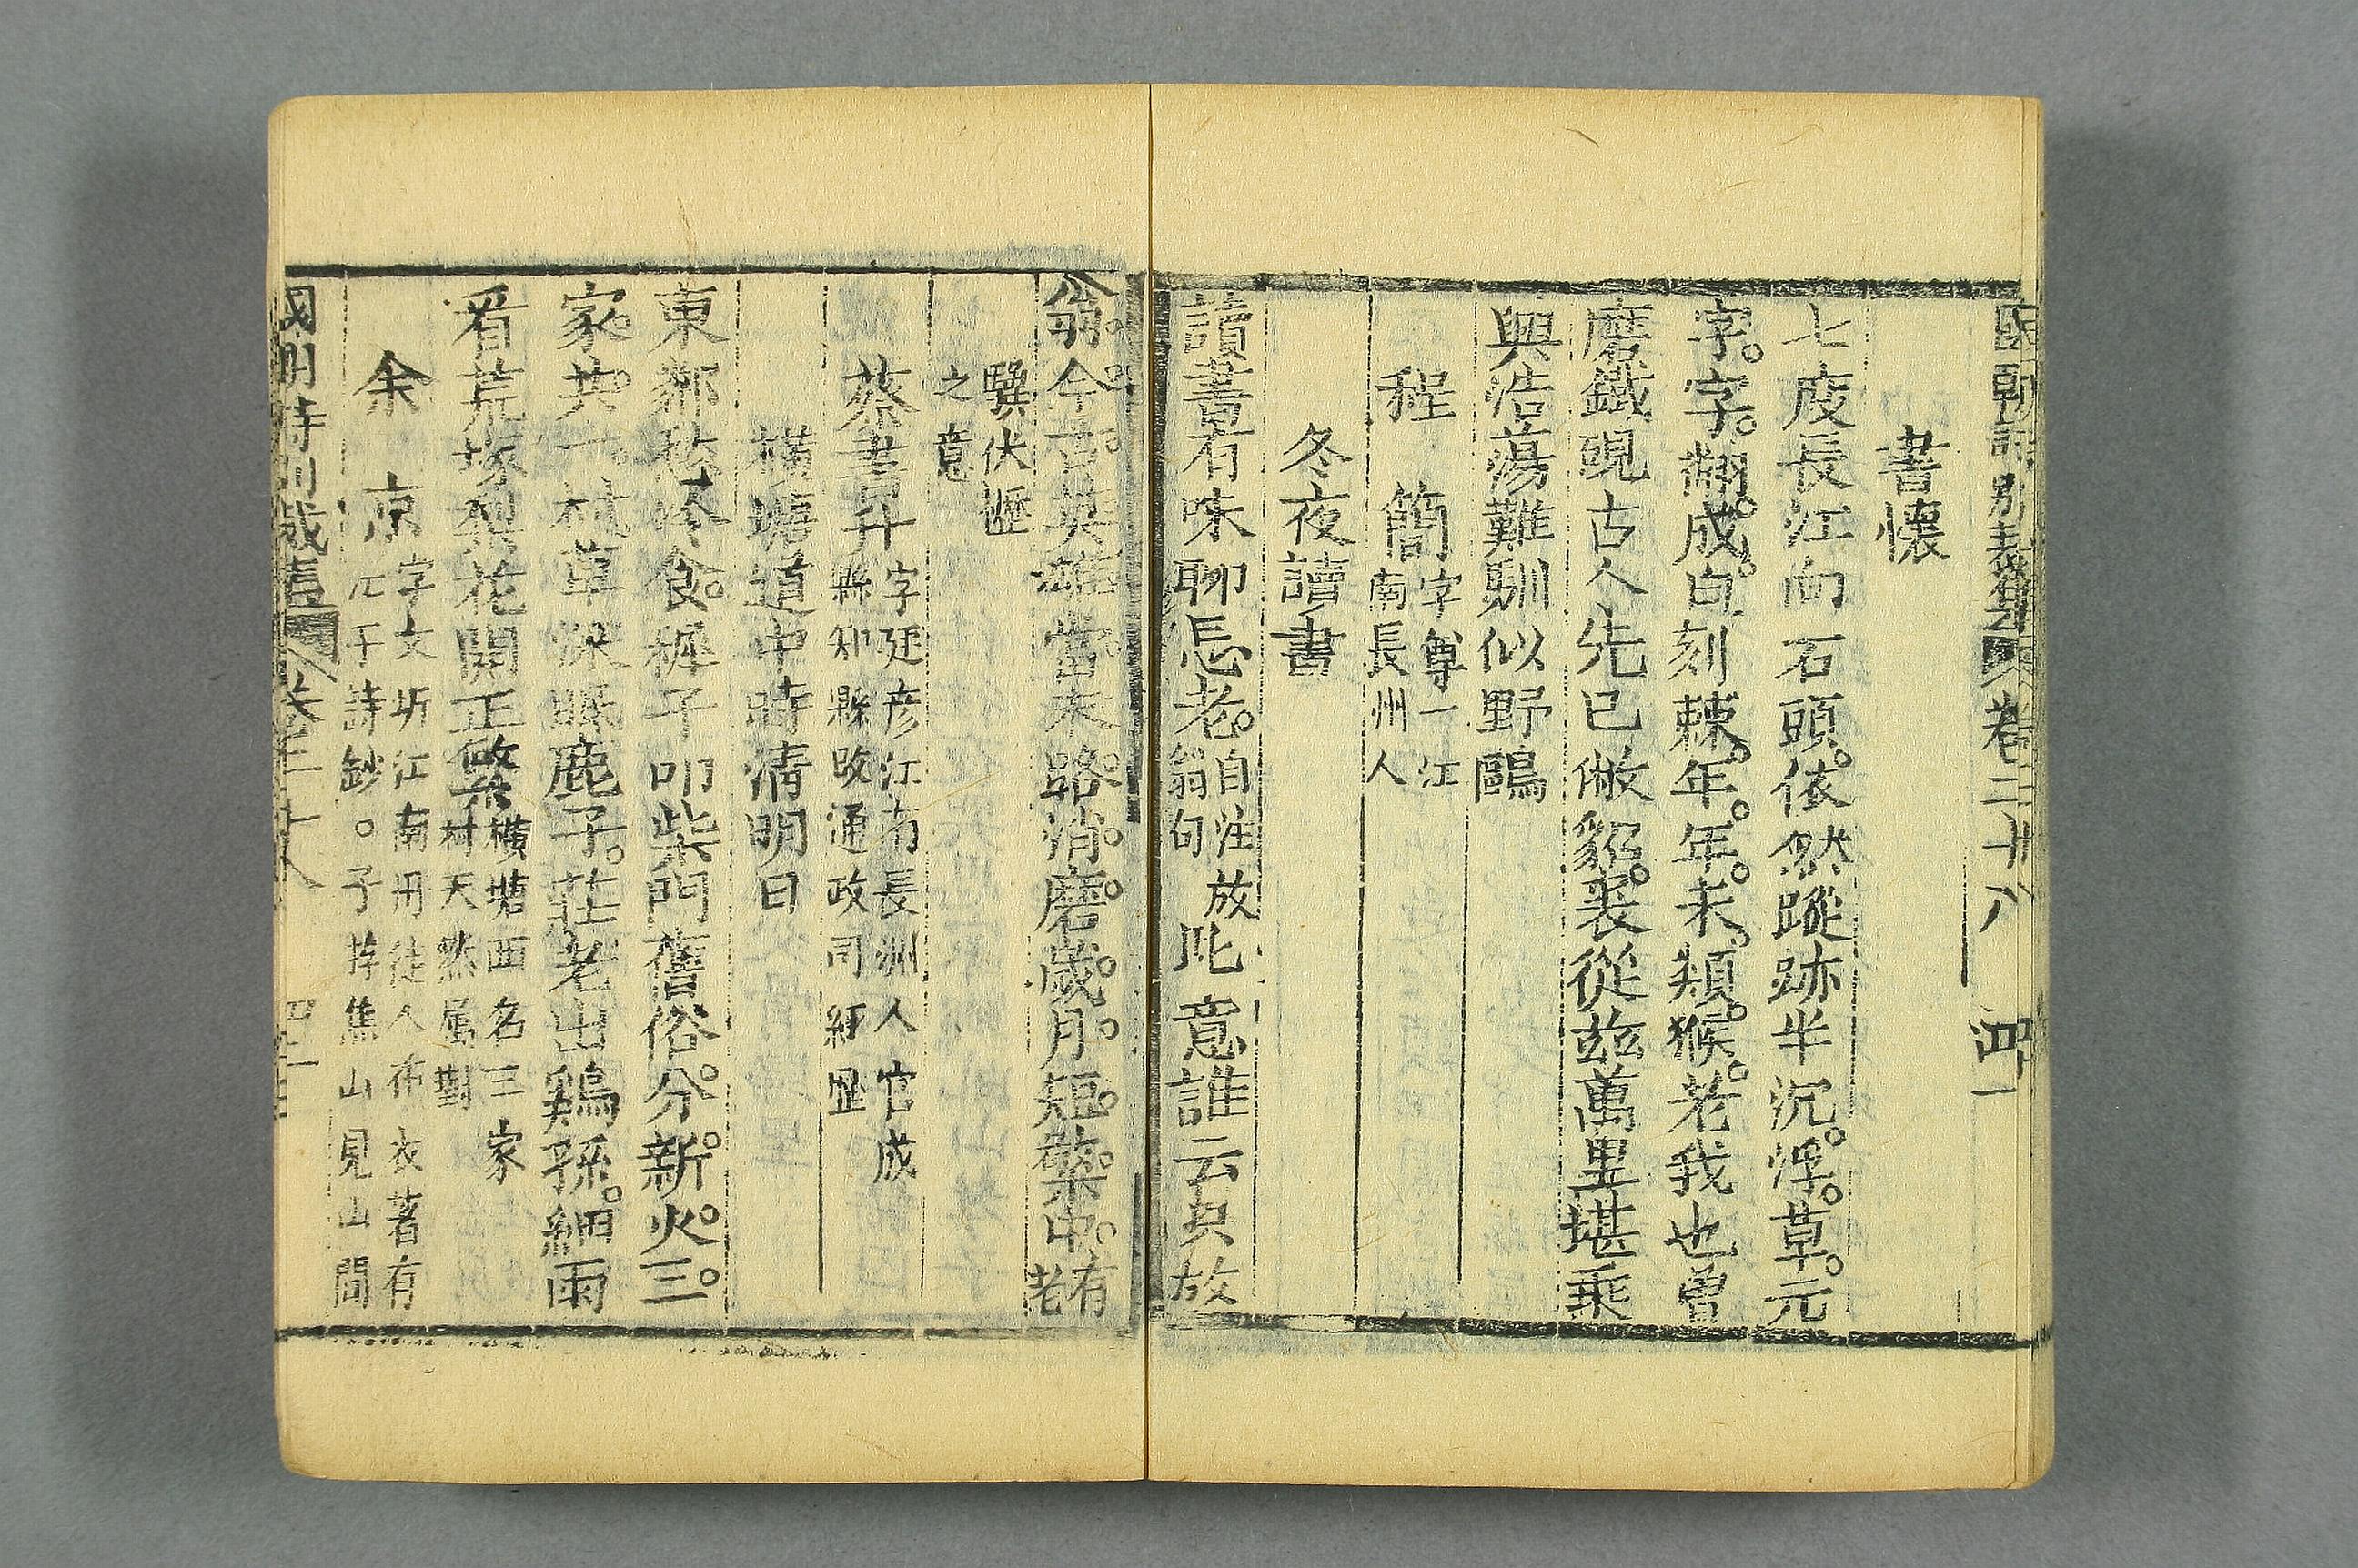 國朝詩別裁集 卷二十八 四一
書懷
七度長江向石頭。依然蹤跡半沉。浮。草。元
字。字。翻。成。自刻棘。年。年。未。類。猴。老我也曾
磨鐵硯古人先已敝貂。裘從茲萬里堪乘
興浩蕩難馴似野鷗
程 簡字尊一江
南長州人
冬夜讀書
讀書有味聊忘老。自注放
翁句此意誰云只放
翁。今。古。英雄當末。路。消。磨。歲。月。短。檠。中。有
老
驥伏櫪
之意
蔡書升字廷彥江南長洲人官成
縣知縣改通政司經歷
橫塘道中時清明日
東鄰移冷食。稗子叩柴門舊俗。分。新。火。三。
家。共。一。村草深眠鹿子。莊老出鷄孫。細雨
看荒塚梨花開正繁橫塘西名三家
村天然屬對
余 京字文圻江南丹徒人布衣著有
江干詩鈔。予遊焦山見山間
卷二十八